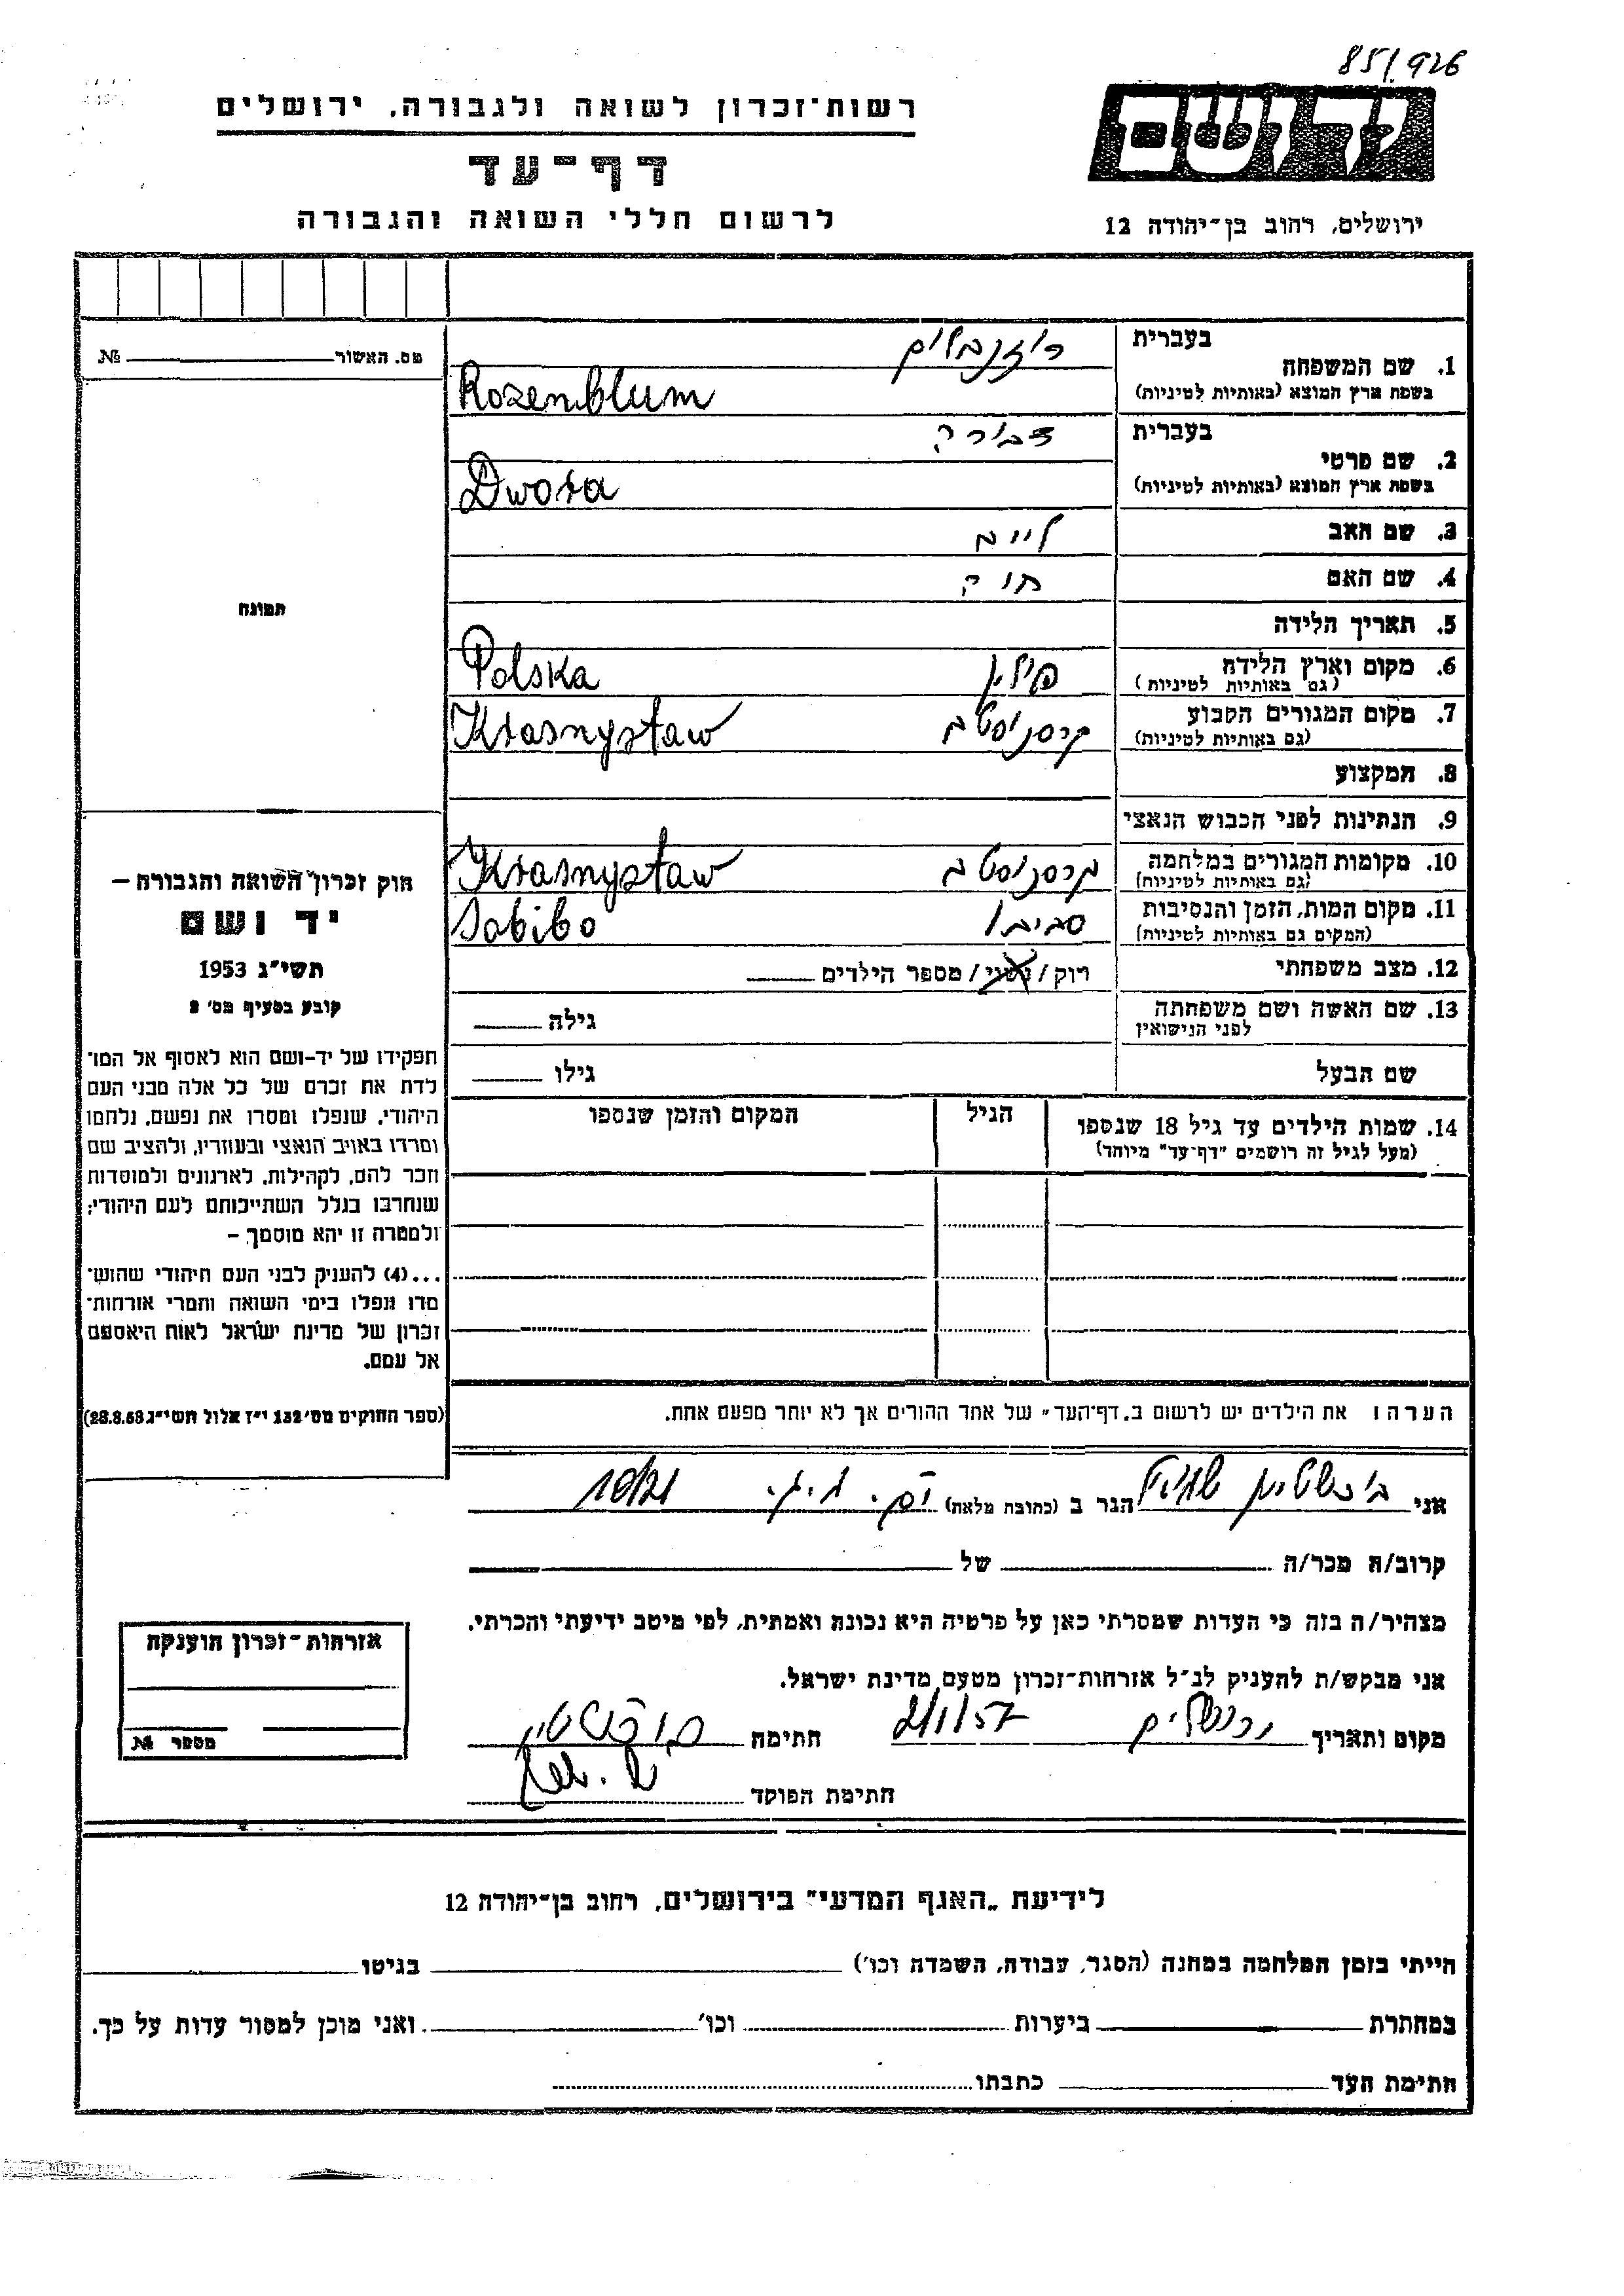 85/926
יד ושם
רשות-זכרון לשואה ולגבורה, ירושלים
דף-עד
לרשום חללי השואה והגבורה
ירושלים, רחוב בן-יהודה 12
מס. האשור № 
בעברית רוזנבלום
1. שם המשפחה
בשפת ארץ המוצא (באותיות לטיניות) Rozenblum
בעברית דבורה
2. שם פרטי
בשפת ארץ המוצא (באותיות לטיניות) Dwora
3. שם האב
4. שם האם
5. תאריך הלידה
6. מקום וארץ הלידה פולין Polska
(גם באותיות לטיניות)
7. מקום המגורים הקבוע קרסניסטב Krasnystaw
(גם באותיות לטיניות)
8. המקצוע
9. הנתינות לפני הכבוש הנאצי
10. מקומות המגורים במלחמה קרסניסטב Krasnystaw
(גם באותיות לטיניות)
11. מקום המות, הזמן והנסיבות סביבו Sobibo
(המקום גם באותיות לטיניות)
12. מצב משפחתי רוק / נשוי / מספר הילדים
13. שם האשה ושם משפחתה גילה
לפני הנישואין
שם הבעל גילו
14. שמות הילדים עד גיל 18 שנספו הגיל המקום והזמן שנספו
(מעל לגיל זה רושמים "דף-עד" מיוחד)
תמונה
חוק זכרון השואה והגבורה –
יד ושם
תשי"ג 1953
קובע בסעיף מס' 2
תפקידו של יד-ושם הוא לאסוף אל המו־
לדת את זכרם של כל אלה מבני העם
היהודי, שנפלו ומסרו את נפשם, נלחמו
ומרדו באויב הנאצי ובעוזריו, ולהציב שם
וזכר להם, לקהילות, לארגונים ולמוסדות
שנחרבו בגלל השתייכותם לעם היהודי;
ולמטרה זו יהא מוסמך –
...(4) להעניק לבני העם היהודי שהוש־
מדו ונפלו בימי השואה והמרי אזרחות־
זכרון של מדינת ישראל לאות היאספם
אל עמם.
(ספר החוקים מס' 132 י"ז אלול תשי"ג 28.8.53)
הערה: את הילדים יש לרשום ב"דף-העד" של אחד ההורים אך לא יותר מפעם אחת.
אני הגר ב (כתובת מלאה) 18/21
קרוב/ה מכר/ה של
מצהיר/ה בזה כי העדות שמסרתי כאן על פרטיה היא נכונה ואמתית, לפי מיטב ידיעתי והכרתי.
אני מבקש/ת להעניק לנ"ל אזרחות-זכרון מטעם מדינת ישראל.
מקום ותאריך ירושלים 2/1/57 חתימה
חתימת הפוקד
אזרחות-זכרון הוענקה
מספר №
לידיעת "האגף המדעי" בירושלים, רחוב בן-יהודה 12
הייתי בזמן המלחמה במחנה (הסגר, עבודה, השמדה וכו') בגיטו
במחתרת ביערות וכו' ואני מוכן למסור עדות על כך.
חתימת העד כתבתו